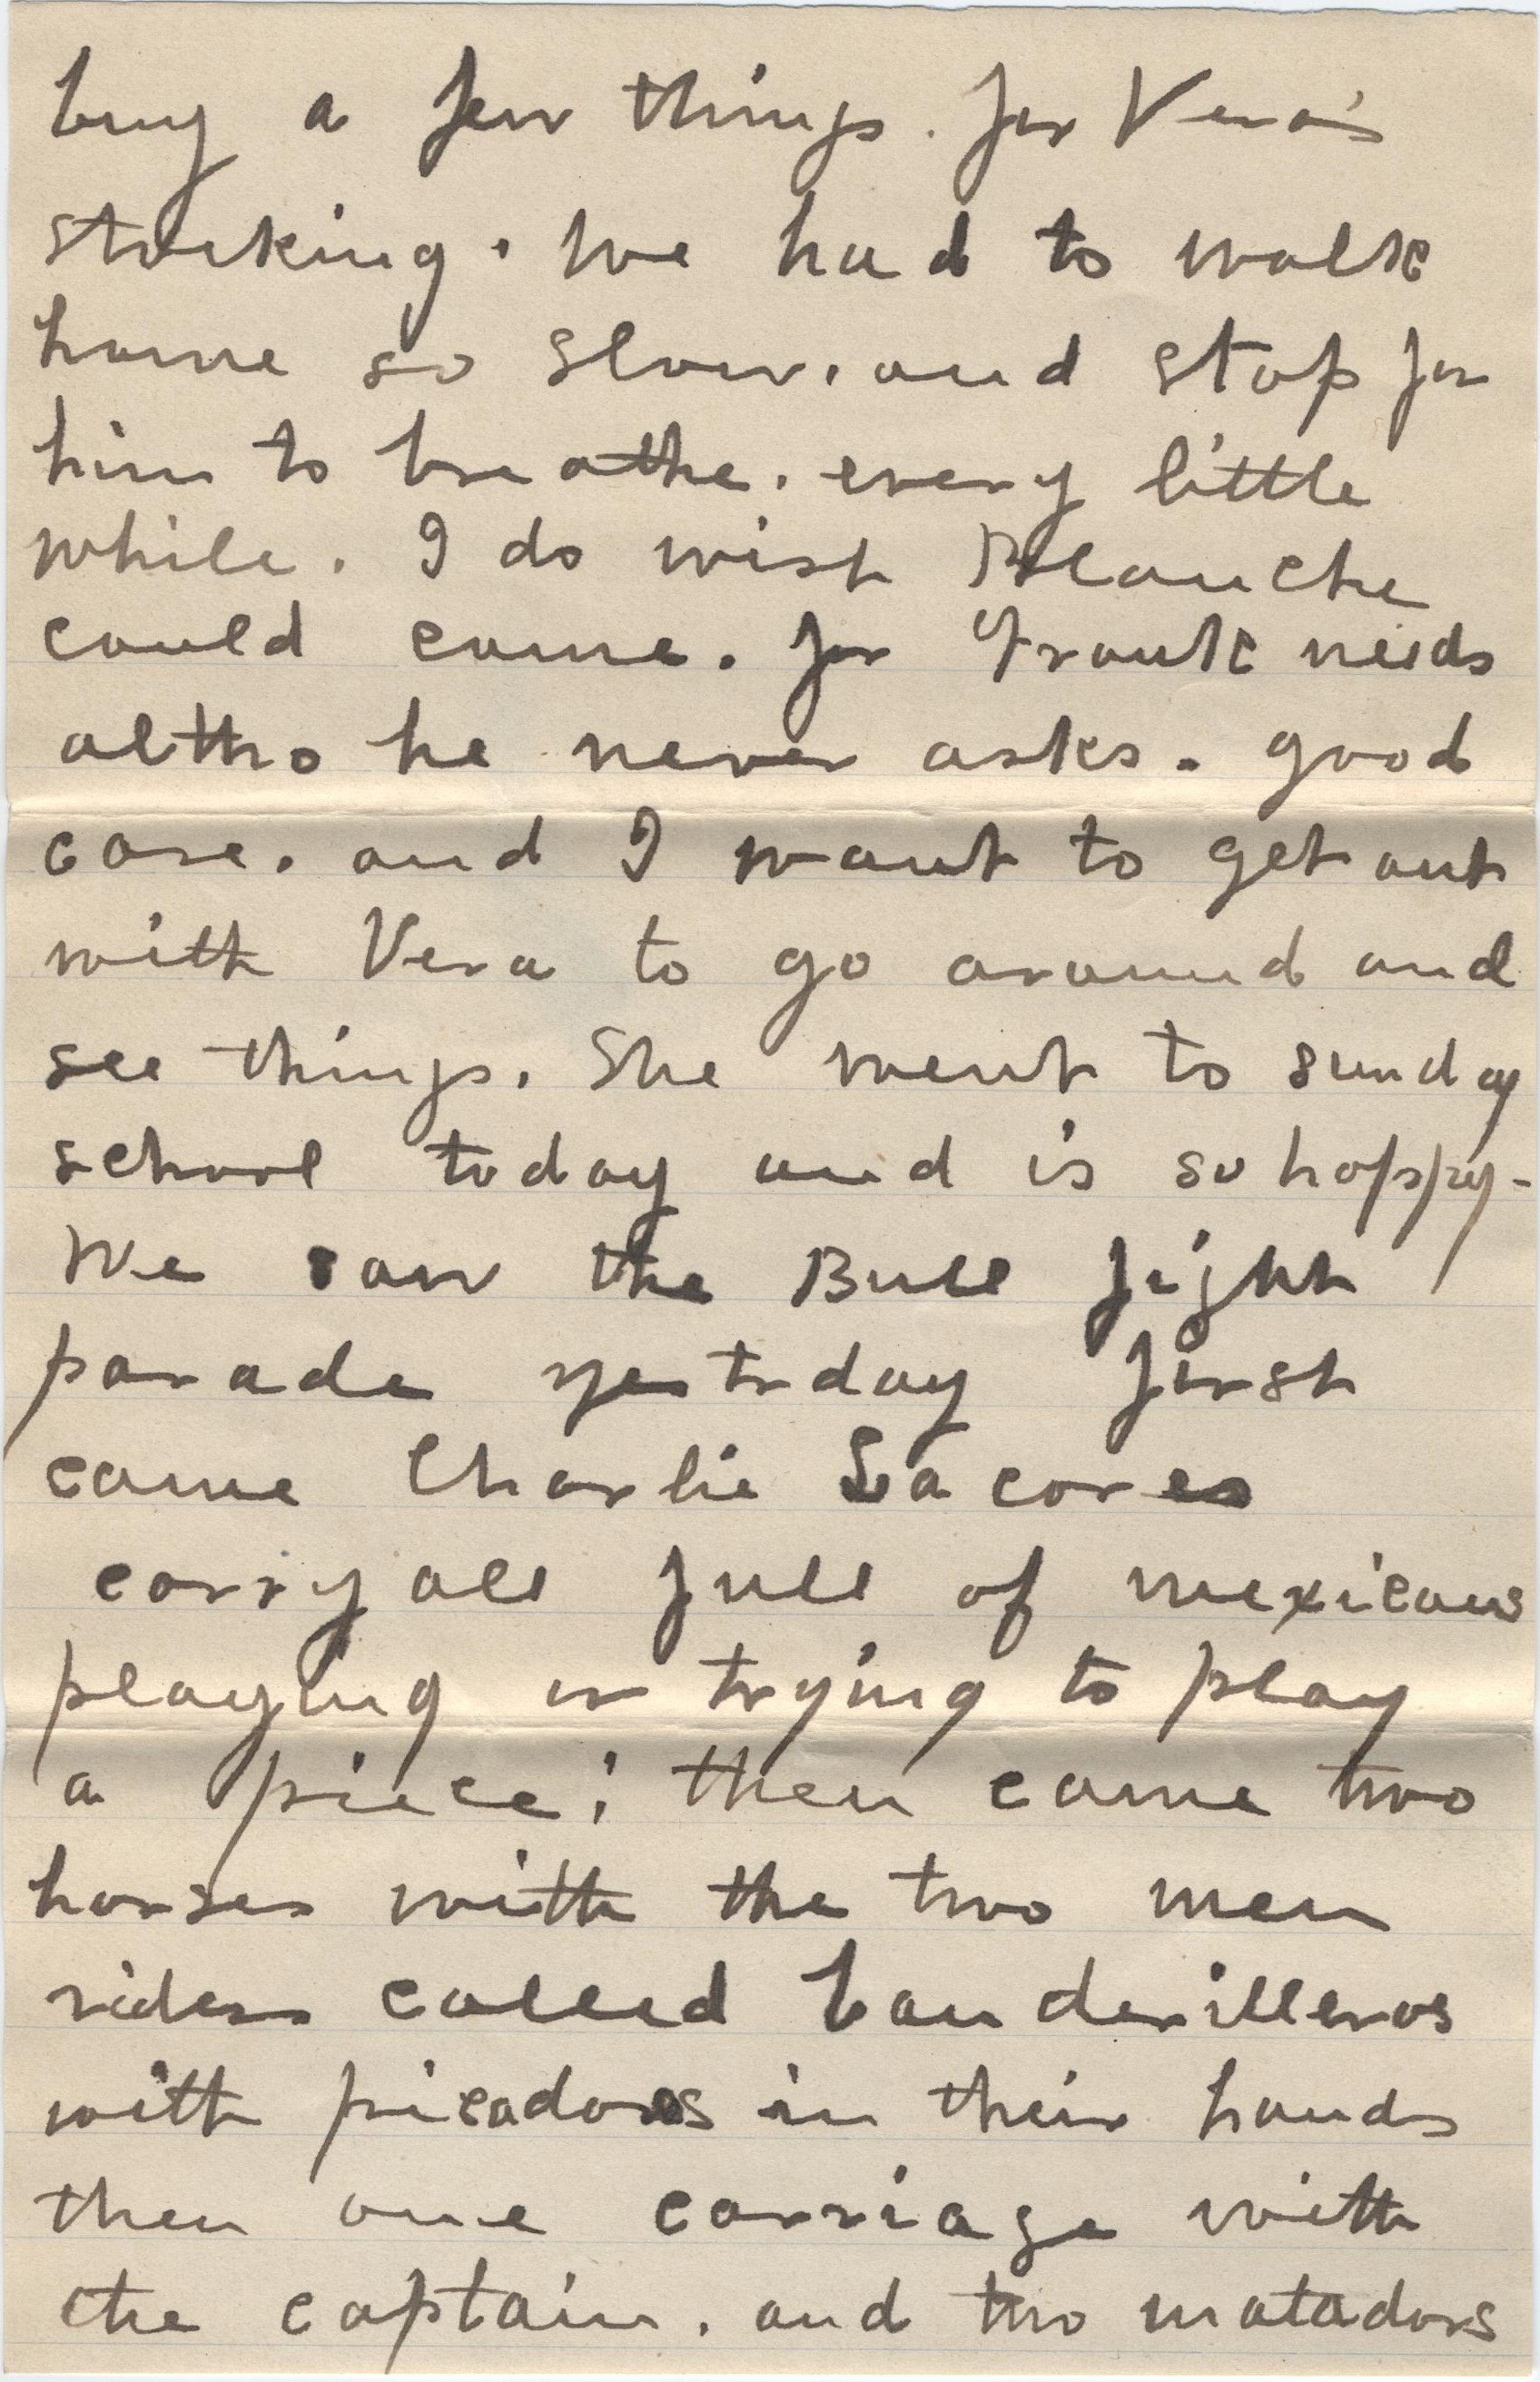 buy a few things. for Vera's
stocking. We had to walk
home so slow. and stop for
him to breathe. every little
while. I do wish Blanche
could come. for Frank needs
altho he never asks. good
care. and I want to get out
with Vera to go around and
see things. She went to sunday
school today and is so happy-
We saw the Bull fight
parade yestrday first
came Charlie Lacores
carry all full of mexicans
playing or trying to play
a piece; then came two
horses with the two men
riders called banderilleros
with picadores in their hands
then one carriage with
the captain. and two matadors